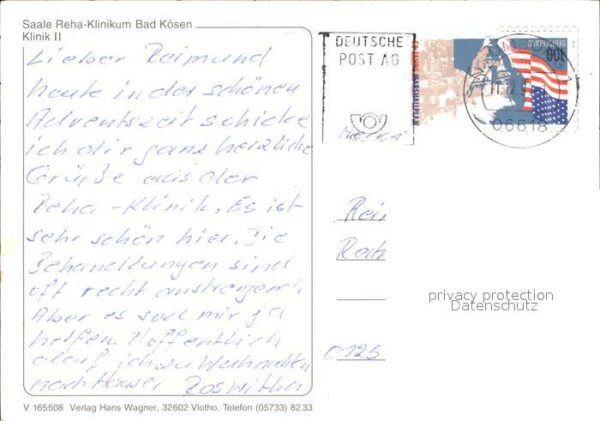 Saale Reha-Klinikum Bad Kösen
Klinik II
Lieber Reimund
heute in der schönen
Adventszeit schicke
ich dir ganz herzliche
Grüße aus der
Reha-Klinik. Es ist
sehr schön hier. Die
Behandlungen sind
oft recht anstrengend
Aber es soll mir ja
helfen. Hoffentlich
darf ich zu Weihnachten
nach Hause. Roswitha
V 165508 Verlag Hans Wagner, 32602 Vlotho. Telefon (05733) 82 33
DEUTSCHE
POST AG
50 JAHRE MARSHALLPLAN
100
06618
Herrn
Rei
Rath
privacy protection
Datenschutz